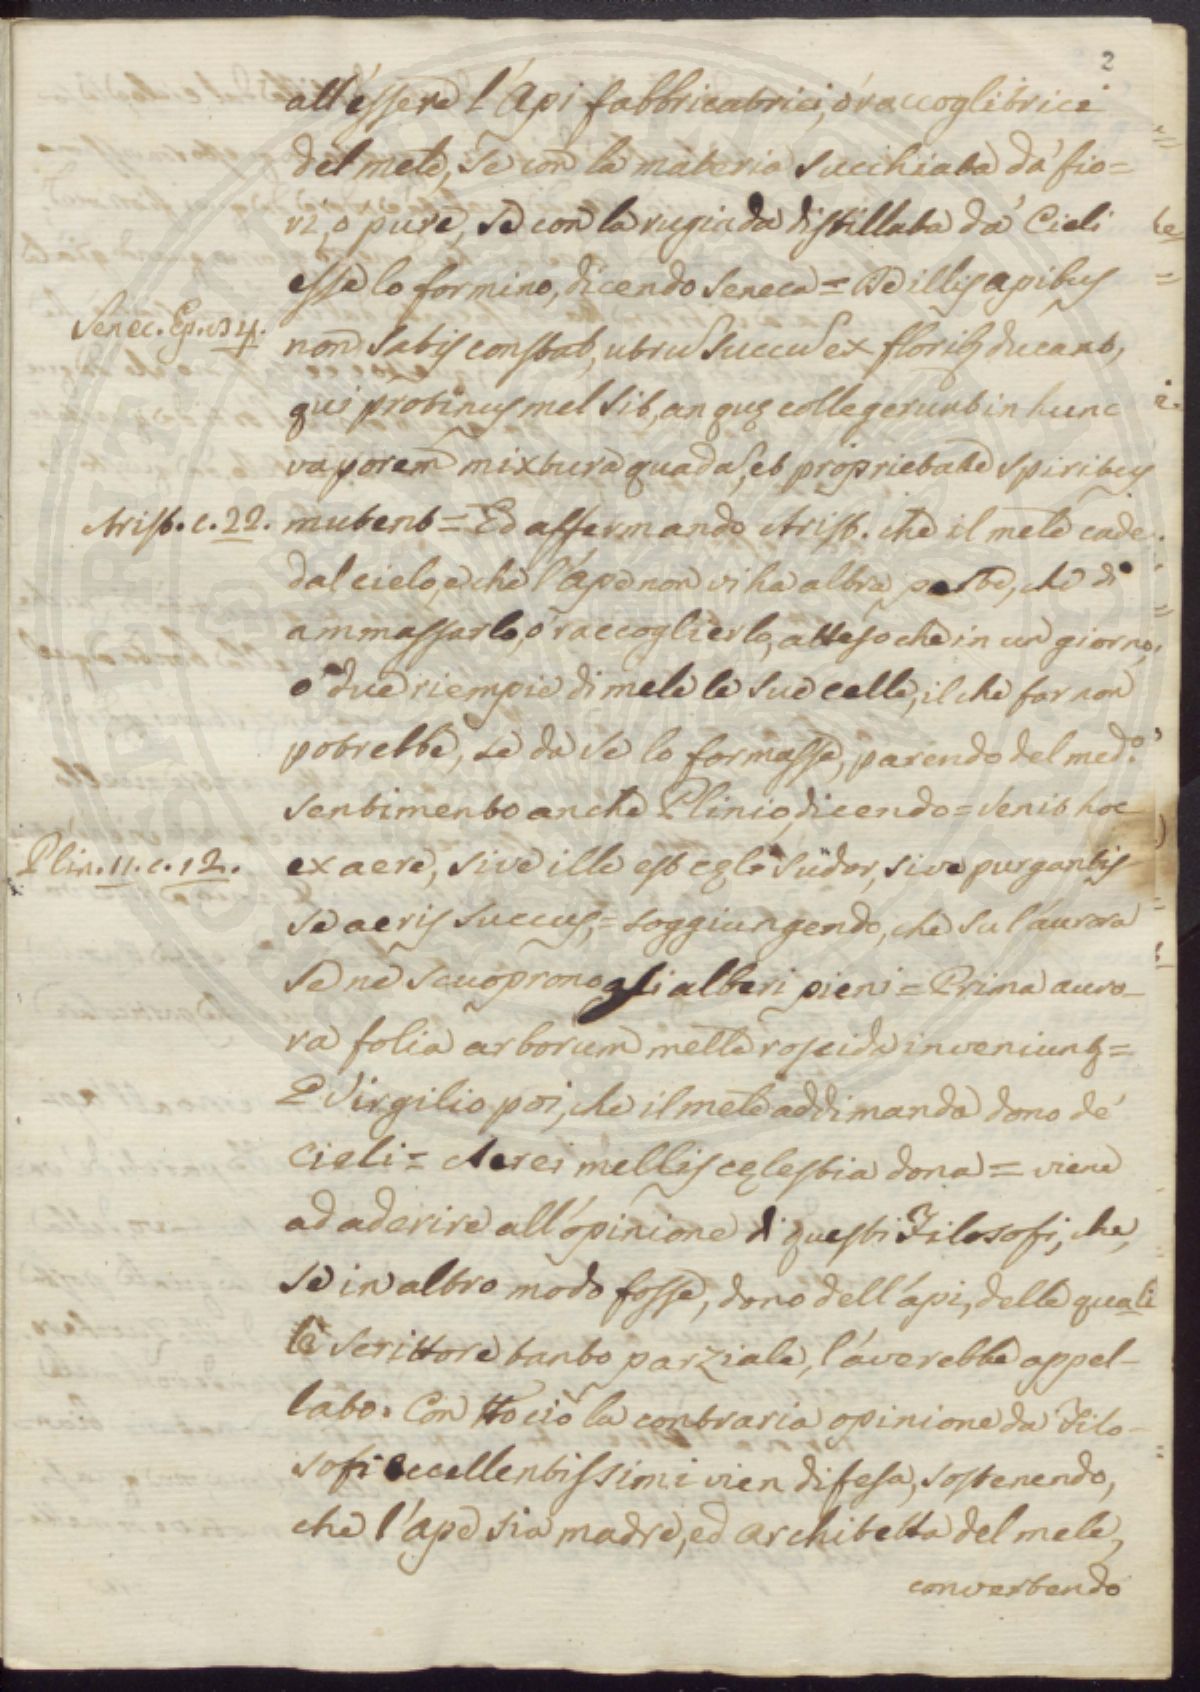 2
all'éssere l'Api fabbricatrici, ó raccoglitrici
del mele, se con la materia succhiata da' fio=
ri, o pure, se con la rugiada distillata da' Cieli
esse lo formino, dicendo Seneca = De illis apibus
Senec. Ep.
non satis constat, utrũ succũ ex floribꝫ ducant,
qui protinus mel sit, an quę collegerunt in hunc
vaporem mixtura quadã, et proprietate spiritus
Arist. c. 22.
mutent = Ed affermando Arist. che il mele cade
dal cielo, e che l'Ape non vi ha altra parte, che di
ammassarlo, ó raccoglierlo, atteso che in un giorno,
o' due riempie di mele le sue celle, il che far non
potrebbe, se da se lo formasse, parendo del med.º
sentimento anche Plinio, dicendo = Venit hoc
Plin. 11. c. 12.
ex aere, sive ille est cęli südor, sive purgantis
se aeris succus, = soggiungendo, che su l'aurora
se ne scuoprono gli alberi pieni = Prima auro-
ra folia arborum melle roscida inveniuntꝫ =
E Virgilio poi, che il mele addimanda dono de'
Cieli = Aerei mellis cęlestia dona = viene
ad aderire all'opinione di questi Filosofi, che,
se in altro modo fosse, dono dell'api, delle quali
è scrittore tanto parziale, l'averebbe appel-
lato. Con tto ciò la contraria opinione da Filo-
sofi eccellentissimi vien difesa, sostenendo,
che l'Ape sia madre, ed architetta del mele,
convertendo